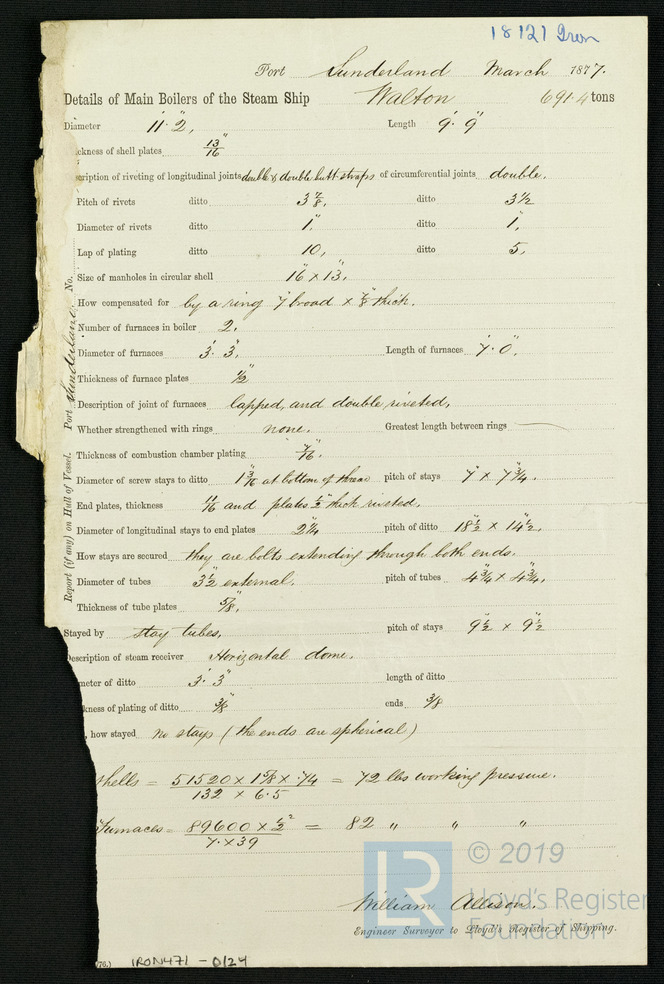 18121 Iron
Port Sunderland March 1877.
Details of Main Boilers of the Steam Ship Walton 691.4 tons
Diameter 11' 2", Length 9' 9"
ckness of shell plates 13/16"
cription of riveting of longitudinal joints double & double butt straps of circumferential joints double.
Pitch of rivets ditto 3 7/8", ditto 3 1/2
Diameter of rivets ditto 1", ditto 1",
Lap of plating ditto 10", ditto 5",
Size of manholes in circular shell 16" x 13",
How compensated for by a ring 7" broad x 7/8" thick.
Number of furnaces in boiler 2.
Diameter of furnaces 3' 3" Length of furnaces 7' 0",
Thickness of furnace plates 1/2"
Description of joint of furnaces lapped, and double riveted,
Whether strengthened with rings none. Greatest length between rings
Thickness of combustion chamber plating 7/16".
Diameter of screw stays to ditto 1 3/16" at bottom of thread pitch of stays 7" x 7 3/4".
End plates, thickness 11/16 and plates 1/2" thick riveted,
Diameter of longitudinal stays to end plates 2 1/4" pitch of ditto 18 1/2" x 14 1/2",
How stays are secured they are bolts extending through both ends.
Diameter of tubes 3 1/2" external. pitch of tubes 4 3/4" x 4 3/4",
Thickness of tube plates 5/8",
Stayed by stay tubes, pitch of stays 9 1/2" x 9 1/2"
escription of steam receiver Horizontal dome.
meter of ditto 3' 3" length of ditto
kness of plating of ditto 3/8" ends 3/8"
, how stayed no stays (the ends are spherical)
Shells = 51520 x 1 5/8 x .74 / 132 x 6.5 = 72 lbs working pressure.
Furnaces = 89600 x 1/2² / 7 x 39 = 82 " " "
William Allison.
Engineer Surveyor to Lloyd's Register of Shipping.
Report (if any) on Hull of Vessel. Port Sunderland. No.
76.) IRON471 - 0124
LR © 2019
Lloyd's Register
Foundation